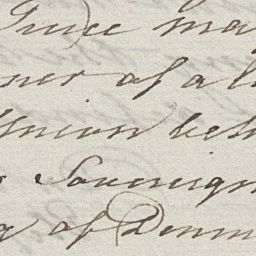 Grace ma
ner of a l
Union bet
Sovereign
of Denm